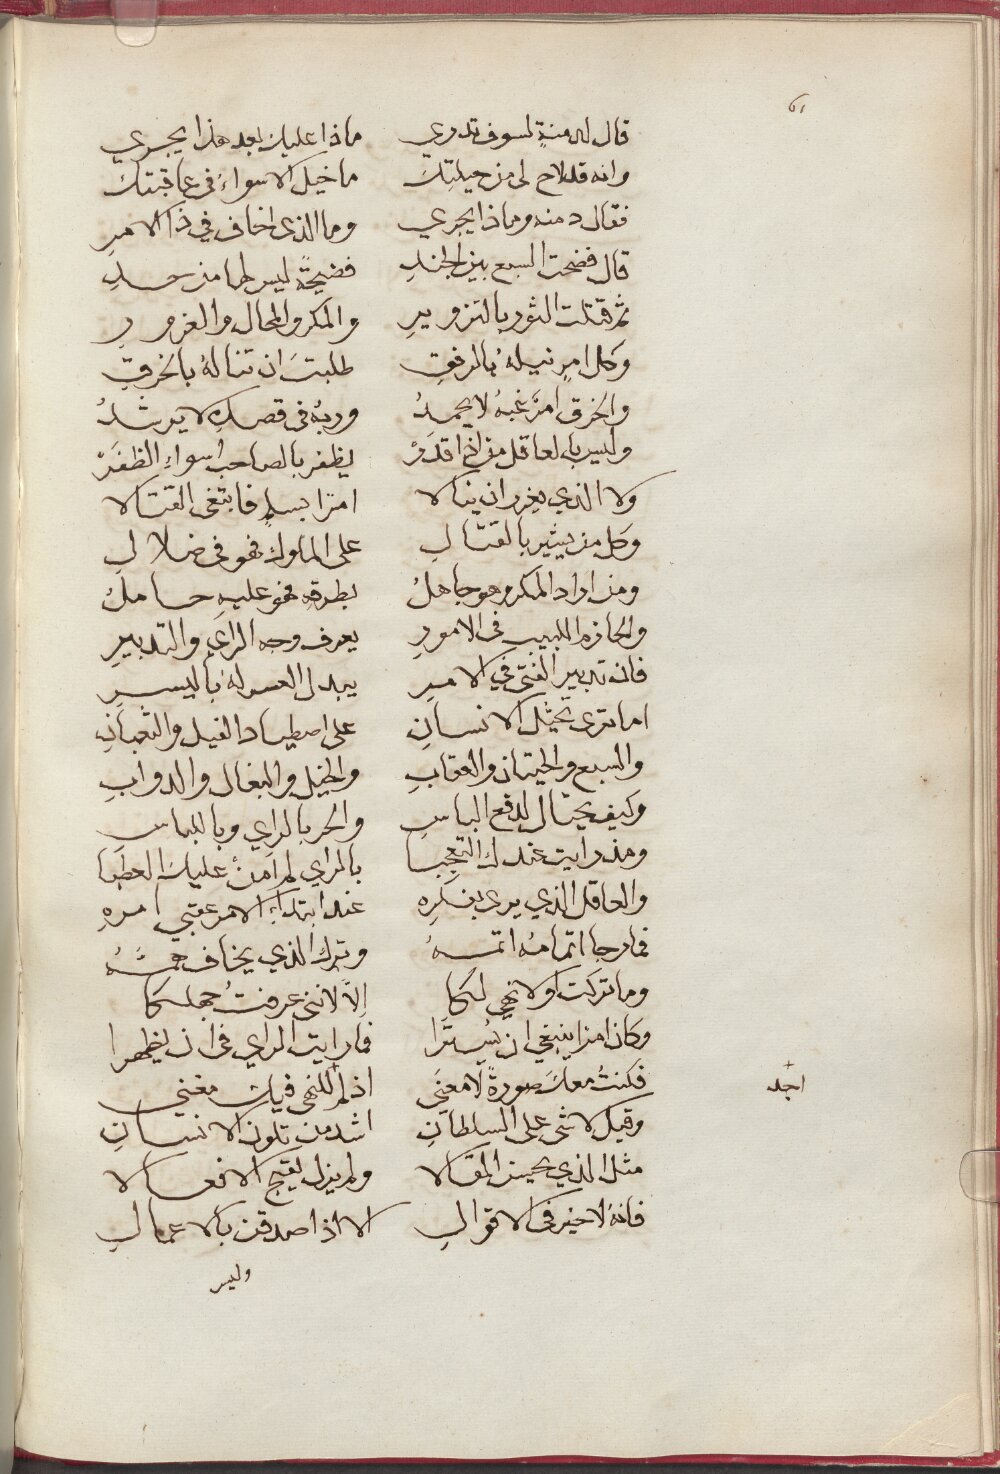 ٦١
قال له دمنة لسوف تدري ماذا عليك بعد هذا يجري
وانه قد لاح لى من حيلتك ما خيل الاسواءَ في عاقبتك
فقال دمنه وماذا يجري وما الذي اخاف في ذا الامرِ
قال فضحت السبع بين الجندِ فضيحةً ليس لها من حدِ
ثم قتلت الثور بالتزويرِ والمكر والمحال والغرورِ
وكل امرٍ نيلهُ بالرفقِ طلبتَ ان تنالهُ بالخرقِ
والخرق امرٌ غبهُ لا يحمدُ وربهُ في قصدهِ لا يرشدُ
وليس بالعاقل من اذا قدَرْ يظفر بالصاحب اسواء الظفَرْ
ولا الذي يغر ان ينالا امرا بسلمٍ فابتغى القتالا
وكل من يشير بالقتالِ على الملوك فهو في ضلالِ
ومن اراد المكر وهو جاهلُ بطرقهِ فهو عليهِ حاملُ
والحازم اللبيب في الامورِ يعرف وجه الراي والتدبيرِ
فان تدبير الفتى في الامرِ يبدل العسر لهُ باليسرِ
اما ترى تحيل الانسانِ على اصطياد الفيل والثعبانِ
والسبع والحيتان والعقابِ والخيل والبغال والدوابِ
وكيف يحتال لدفع الباسِ والحر بالراي وباللباسِ
ومذ رايت عندك التعجبا بالراي لم آمنْ عليك العطبا
والعاقل الذي يرى بفكرِه عند ابتداء الامر عقبى امرهِ
فما رجا اتمامهُ اتمهُ وترك الذي يخاف همهُ
وما تركت اولا نهيي لكا الّا لانني عرفتُ جهلكا
وكان امرا ينبغي ان يُسترا فما رايت الراي في ان يظهرا
فكنتُ معكَ صورةً لا معنى اذ لم اجد للنهي فيك مغني
وقيل لا شي على السلطانِ اشد من تلون الانسانِ
مثل الذي يحسن المقالا ولم يزل يقبح الافعالا
فانهُ لا خير في الاقوالِ الا اذا صدقن بالاعمالِ
وليس